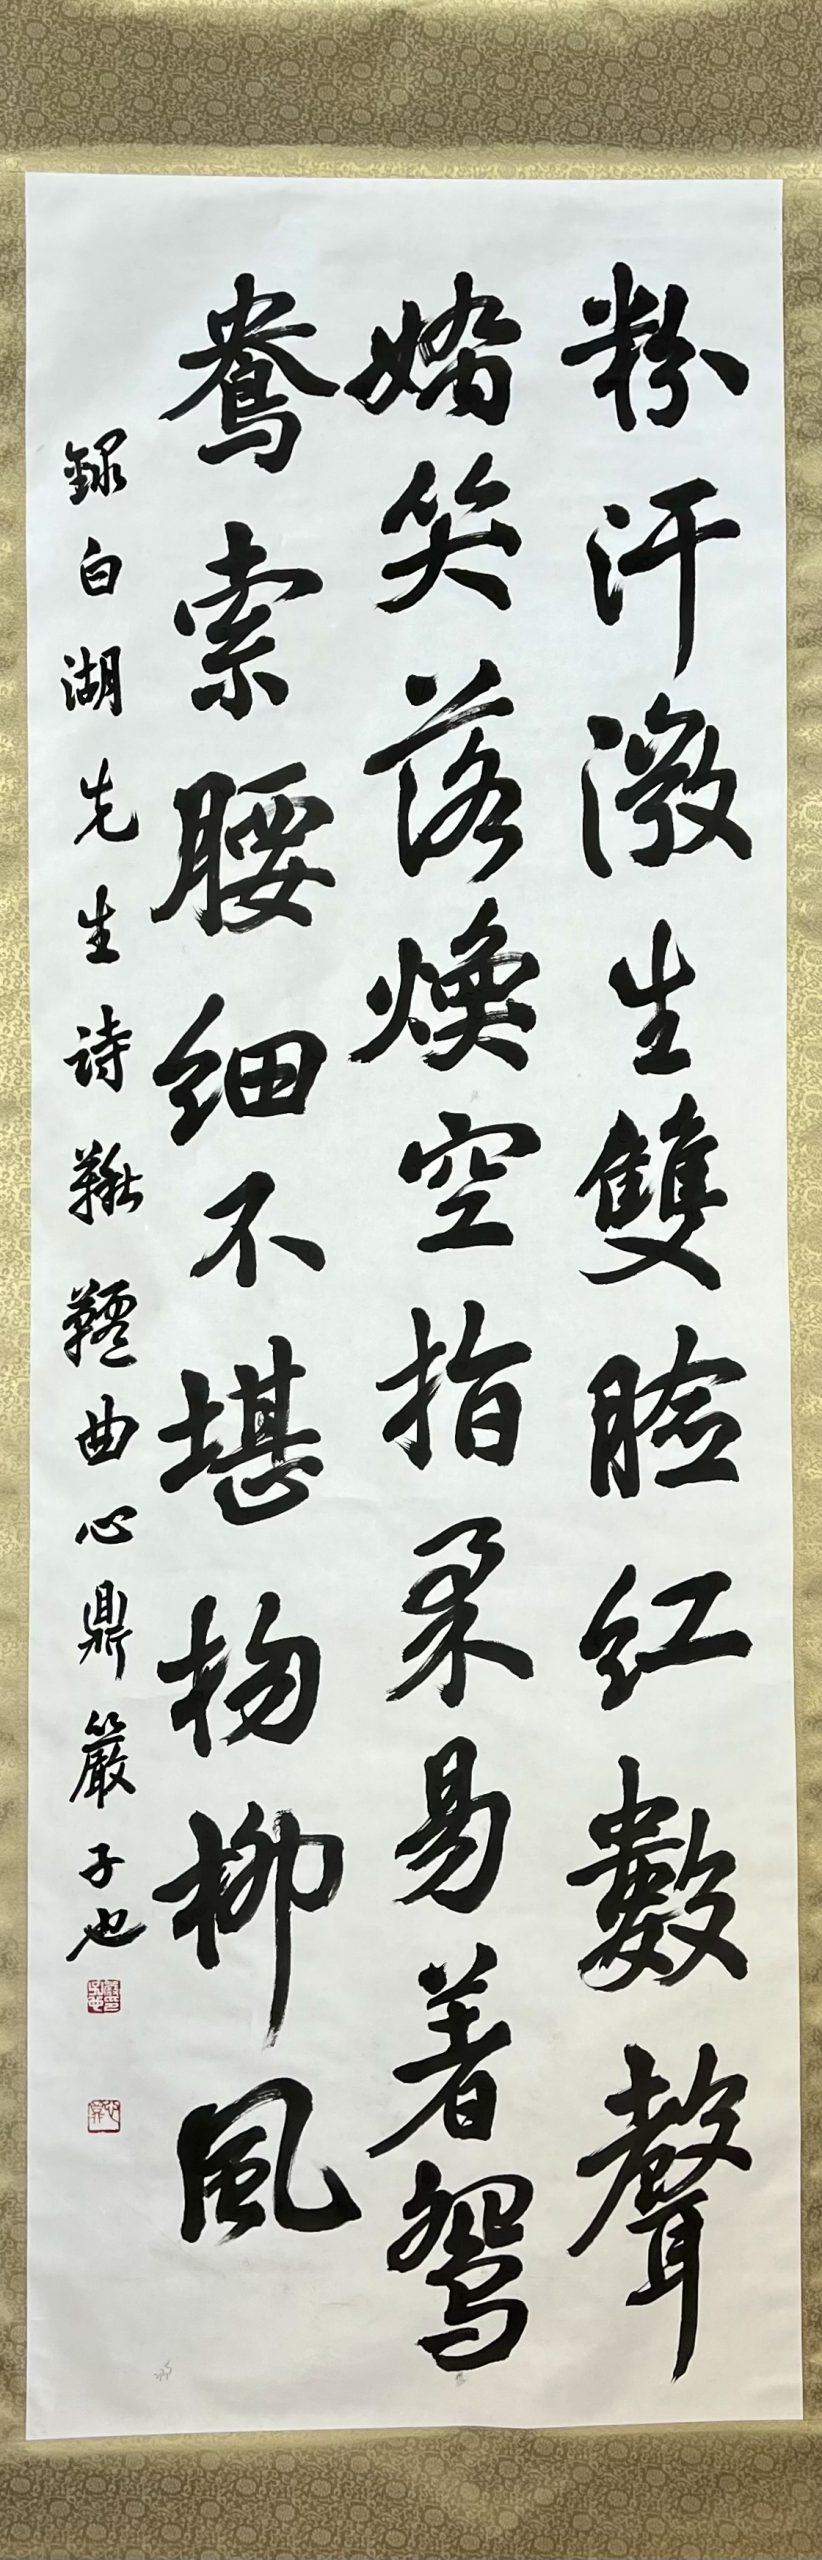 粉汗潑生雙臉紅數聲
嬌笑落煥空指柔易著鴛
鴦索腰細不堪楊柳風
錄白湖先生詩鞦韆曲心鼎嚴子也